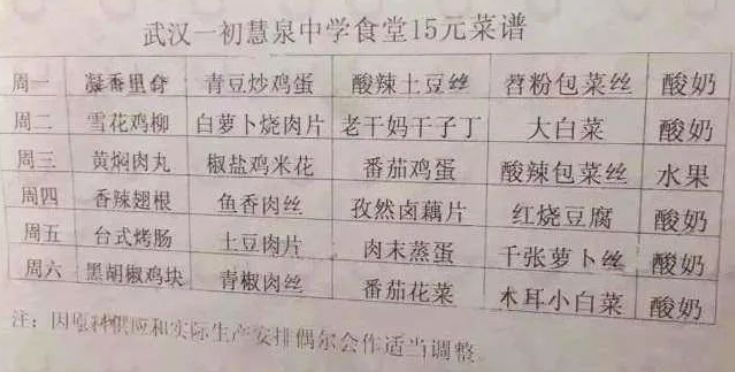 武汉一初慧泉中学食堂15元菜谱
周一 青豆炒鸡蛋 酸辣土豆丝 苕粉包菜丝 酸奶
周二 雪花鸡柳 白萝卜烧肉片 老干妈干子丁 大白菜 酸奶
周三 黄焖肉丸 椒盐鸡米花 番茄鸡蛋 酸辣包菜丝 水果
周四 香辣翅根 鱼香肉丝 孜然卤藕片 红烧豆腐 酸奶
周五 台式烤肠 土豆肉片 肉末蒸蛋 千张萝卜丝 酸奶
周六 黑胡椒鸡块 青椒肉丝 番茄花菜 木耳小白菜 酸奶
注：因原料供应和实际生产安排偶尔会作适当调整